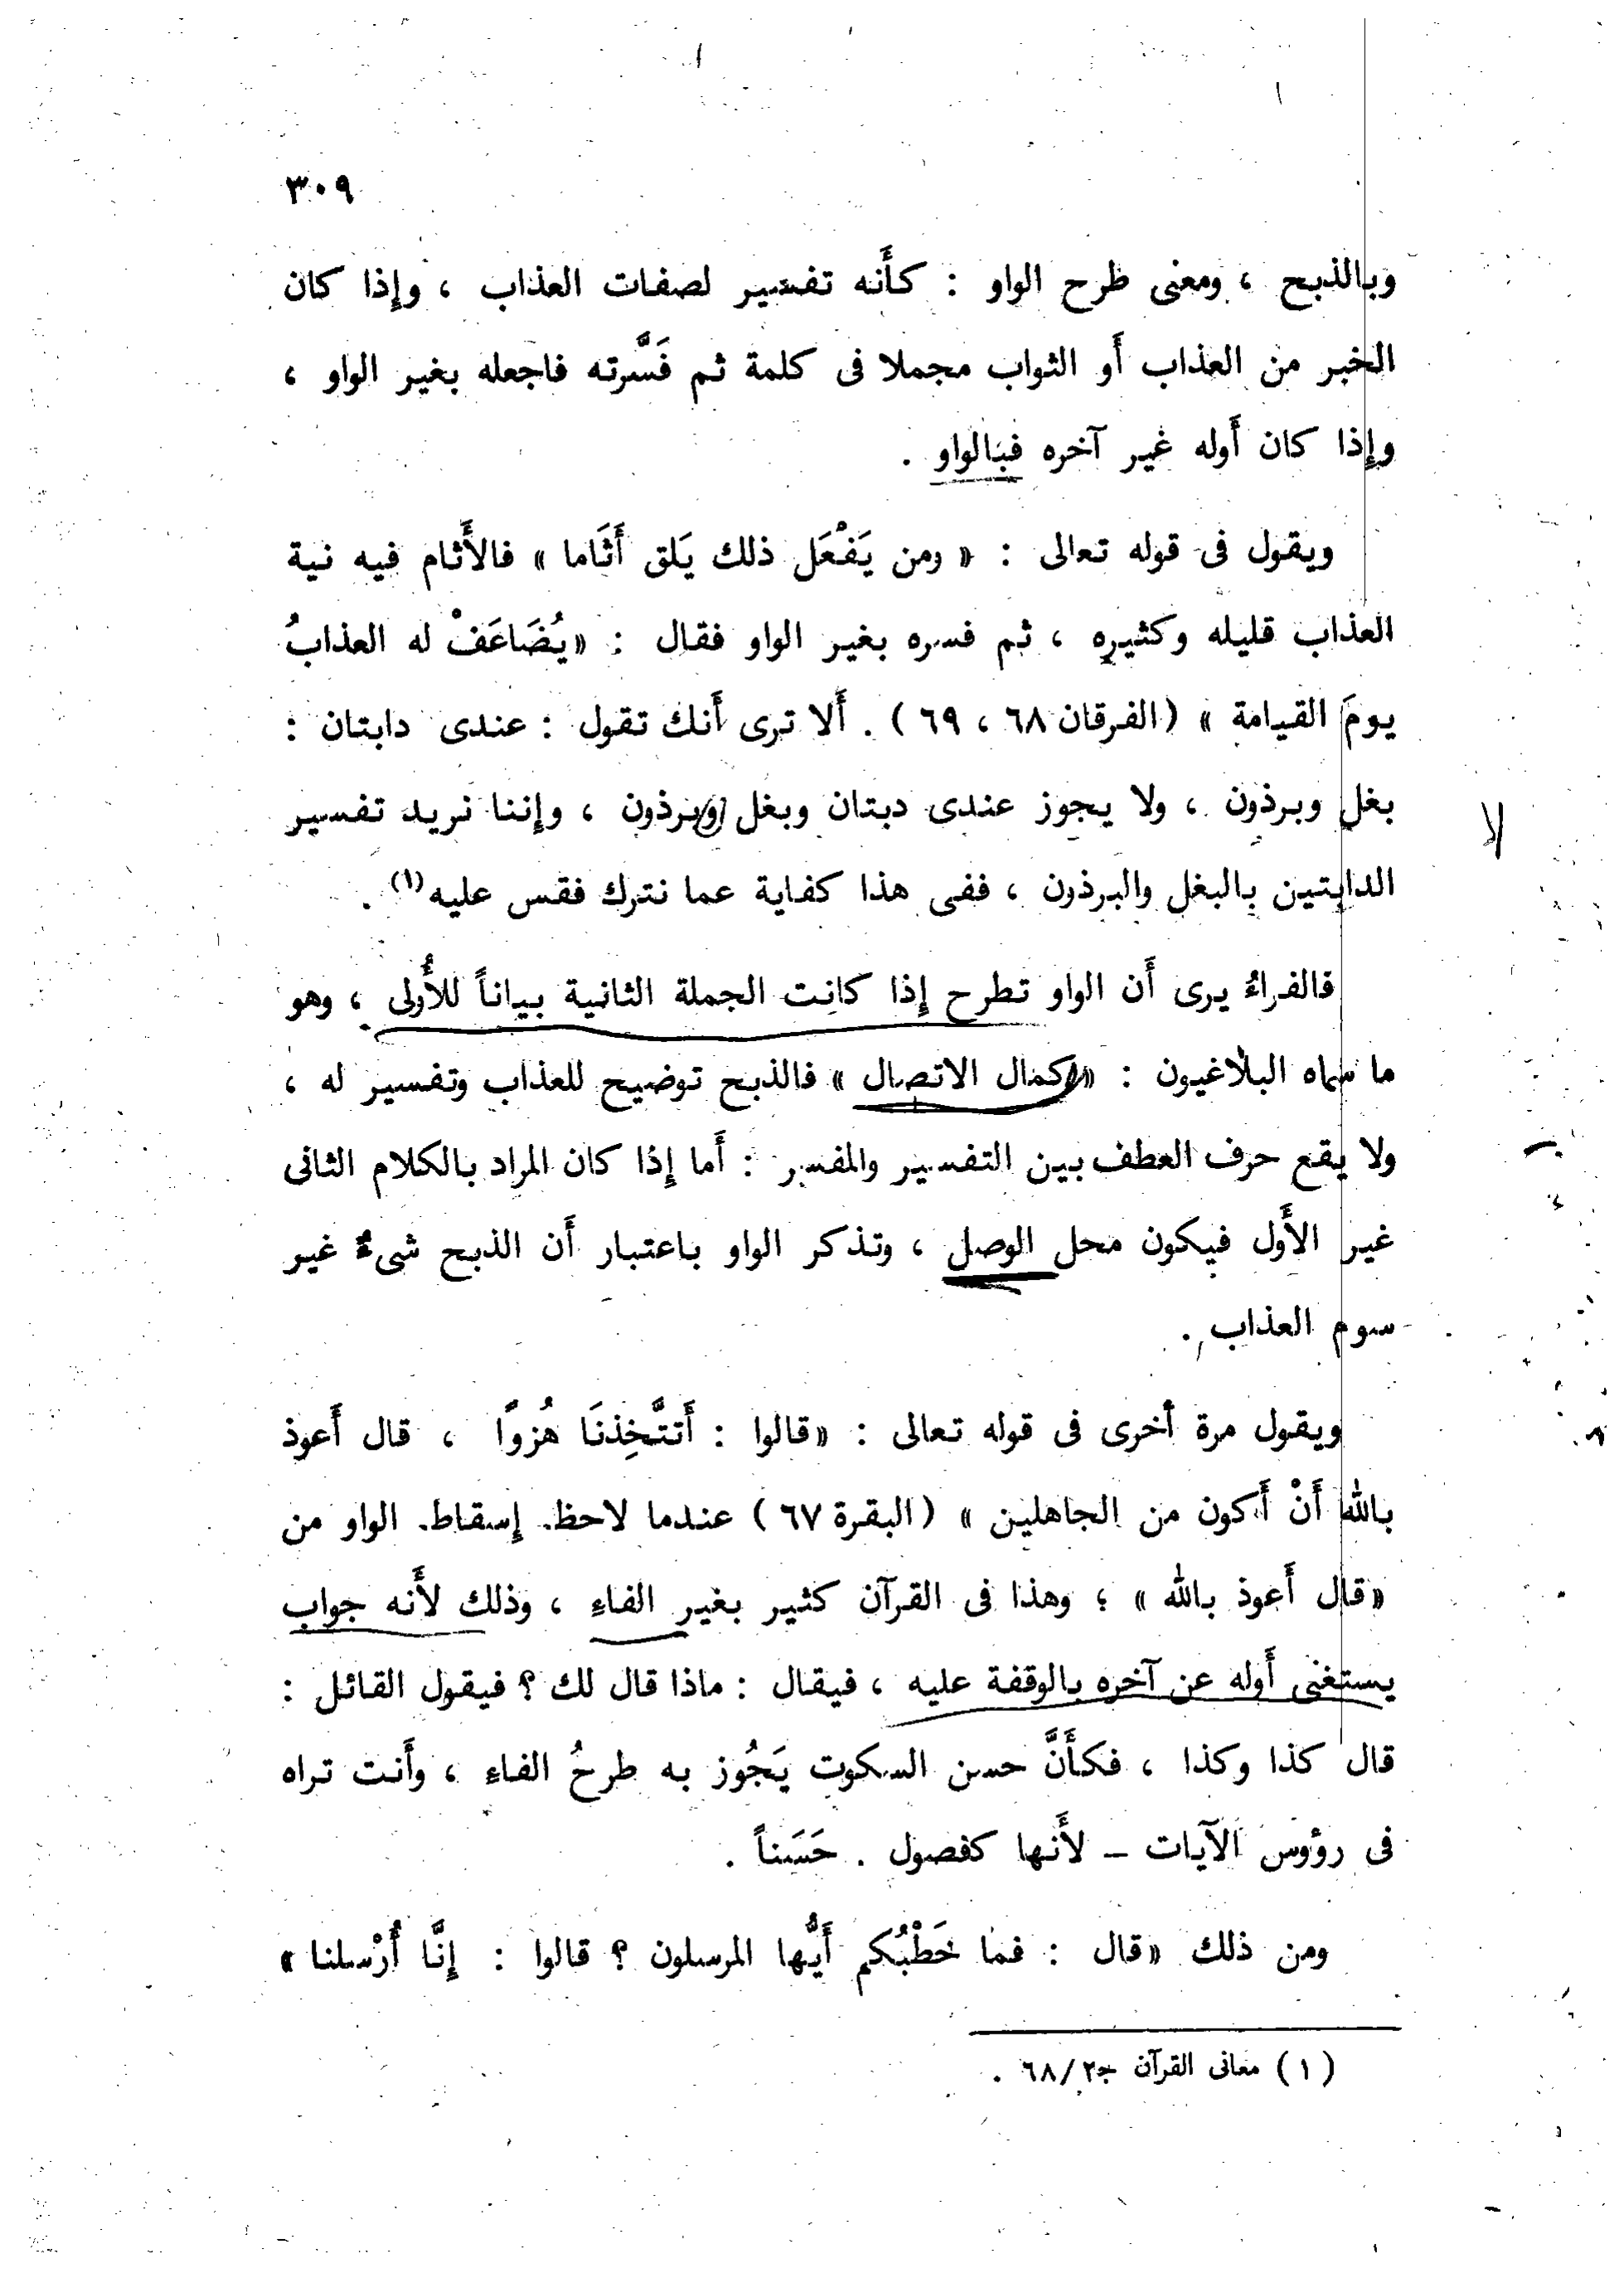 ٣٠٩
وبالذبح ، ومعنى طرح الواو : كأَنه تفسير لصفات العذاب ، وإِذا كان
الخبر من العذاب أَو الثواب مجملا فى كلمة ثم فَسَّرته فاجعله بغير الواو ،
وإِذا كان أَوله غير آخره فبالواو .
ويقول فى قوله تعالى : « ومن يَفْعَل ذلك يَلق أَثَاما » فالأَثام فيه نية
العذاب قليله وكثيره ، ثم فسره بغير الواو فقال : «يُضَاعَفْ له العذابُ
يومَ القيامة » (الفرقان ٦٨ ، ٦٩ ) . أَلا ترى أَنك تقول : عندى دابتان :
بغل وبرذون ، ولا يجوز عندى دبتان وبغل وبرذون ، وإننا نريد تفسير
الدابتين بالبغل والبرذون ، ففى هذا كفاية عما نترك فقس عليه(١) .
لا
فالفراءُ يرى أَن الواو تطرح إِذا كانت الجملة الثانية بياناً للأُولى ، وهو
ما سماه البلاغيون : «كمال الاتصال » فالذبح توضيح للعذاب وتفسير له ،
ولا يقع حرف العطف بين التفسير والمفسر : أَما إِذا كان المراد بالكلام الثانى
غير الأَول فيكون محل الوصل ، وتذكر الواو باعتبار أَن الذبح شىءٌ غير
سوم العذاب .
ويقول مرة أخرى فى قوله تعالى : «قالوا : أَتتَّخِذنَا هُزوًا ، قال أَعوذ
بالله أَنْ أَكون من الجاهلين » (البقرة ٦٧ ) عندما لاحظ إسقاط الواو من
«قال أَعوذ بالله » ؛ وهذا فى القرآن كثير بغير الفاءِ ، وذلك لأَنه جواب
يستغنى أَوله عن آخره بالوقفة عليه ، فيقال : ماذا قال لك ؟ فيقول القائل :
قال كذا وكذا ، فكأَنَّ حسن السكوت يَجُوز به طرحُ الفاءِ ، وأَنت تراه
فى رؤوس الآيات – لأَنها كفصول . حَسَناً .
ومن ذلك «قال : فما خَطْبُكم أَيُّها المرسلون ؟ قالوا : إِنَّا أُرْسلنا »
(١) معانى القرآن ج٢/٦٨ .